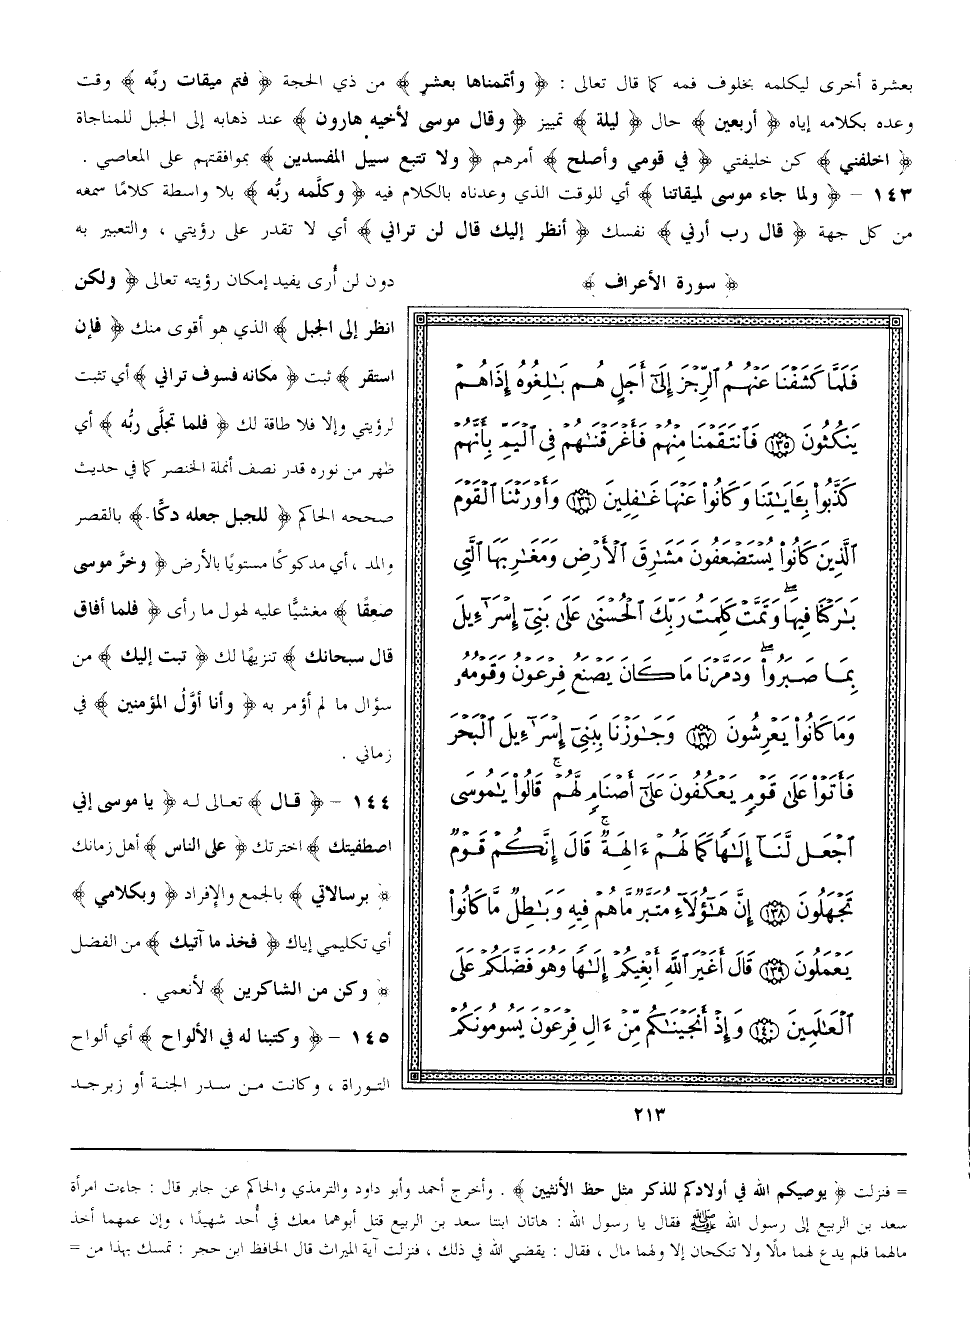 بعشرة أخرى ليكلمه بخلوف فمه كما قال تعالى : ﴿ وأتممناها بعشر ﴾ من ذي الحجة ﴿ فتم ميقات ربِّه ﴾ وقت
وعده بكلامه إياه ﴿ أربعين ﴾ حال ﴿ ليلة ﴾ تمييز ﴿ وقال موسى لأخيه هارون ﴾ عند ذهابه إلى الجبل للمناجاة
﴿ اخلفني ﴾ كن خليفتي ﴿ في قومي وأصلح ﴾ أمرهم ﴿ ولا تتبع سبيل المفسدين ﴾ بموافقتهم على المعاصي .
١٤٣ – ﴿ ولما جاء موسى لميقاتنا ﴾ أي للوقت الذي وعدناه بالكلام فيه ﴿ وكلَّمه ربُّه ﴾ بلا واسطة كلامًا سمعه
من كل جهة ﴿ قال رب أرني ﴾ نفسك ﴿ أنظر إليك قال لن تراني ﴾ أي لا تقدر على رؤيتي ، والتعبير به
دون لن أُرى يفيد إمكان رؤيته تعالى ﴿ ولكن
انظر إلى الجبل ﴾ الذي هو أقوى منك ﴿ فإن
استقر ﴾ ثبت ﴿ مكانه فسوف تراني ﴾ أي تثبت
لرؤيتي وإلا فلا طاقة لك ﴿ فلما تجلَّى ربُّه ﴾ أي
ظهر من نوره قدر نصف أنملة الخنصر كما في حديث
صححه الحاكم ﴿ للجبل جعله دكًّا ﴾ بالقصر
والمد ، أي مدكوكًا مستويًا بالأرض ﴿ وخرَّ موسى
صعقًا ﴾ مغشيًّا عليه لهول ما رأى ﴿ فلما أفاق
قال سبحانك ﴾ تنزيهًا لك ﴿ تبت إليك ﴾ من
سؤال ما لم أؤمر به ﴿ وأنا أوَّلُ المؤمنين ﴾ في
زماني .
١٤٤ – ﴿ قال ﴾ تعالى له ﴿ يا موسى إني
اصطفيتك ﴾ اخترتك ﴿ على الناس ﴾ أهل زمانك
﴿ برسالاتي ﴾ بالجمع والإفراد ﴿ وبكلامي ﴾
أي تكليمي إياك ﴿ فخذ ما آتيك ﴾ من الفضل
﴿ وكن من الشاكرين ﴾ لأنعمي .
١٤٥ – ﴿ وكتبنا له في الألواح ﴾ أي ألواح
التوراة ، وكانت من سدر الجنة أو زبرجد
﴿ سورة الأعراف ﴾
فَلَمَّا كَشَفْنَا عَنْهُمُ ٱلرِّجْزَ إِلَىٰٓ أَجَلٍ هُم بَٰلِغُوهُ إِذَا هُمْ
يَنكُثُونَ ١٣٥ فَٱنتَقَمْنَا مِنْهُمْ فَأَغْرَقْنَٰهُمْ فِى ٱلْيَمِّ بِأَنَّهُمْ
كَذَّبُوا۟ بِـَٔايَٰتِنَا وَكَانُوا۟ عَنْهَا غَٰفِلِينَ ١٣٦ وَأَوْرَثْنَا ٱلْقَوْمَ
ٱلَّذِينَ كَانُوا۟ يُسْتَضْعَفُونَ مَشَٰرِقَ ٱلْأَرْضِ وَمَغَٰرِبَهَا ٱلَّتِى
بَٰرَكْنَا فِيهَا ۖ وَتَمَّتْ كَلِمَتُ رَبِّكَ ٱلْحُسْنَىٰ عَلَىٰ بَنِىٓ إِسْرَٰٓءِيلَ
بِمَا صَبَرُوا۟ ۖ وَدَمَّرْنَا مَا كَانَ يَصْنَعُ فِرْعَوْنُ وَقَوْمُهُۥ
وَمَا كَانُوا۟ يَعْرِشُونَ ١٣٧ وَجَٰوَزْنَا بِبَنِىٓ إِسْرَٰٓءِيلَ ٱلْبَحْرَ
فَأَتَوْا۟ عَلَىٰ قَوْمٍ يَعْكُفُونَ عَلَىٰٓ أَصْنَامٍ لَّهُمْ ۚ قَالُوا۟ يَٰمُوسَى
ٱجْعَل لَّنَآ إِلَٰهًا كَمَا لَهُمْ ءَالِهَةٌ ۚ قَالَ إِنَّكُمْ قَوْمٌ
تَجْهَلُونَ ١٣٨ إِنَّ هَٰٓؤُلَآءِ مُتَبَّرٌ مَّا هُمْ فِيهِ وَبَٰطِلٌ مَّا كَانُوا۟
يَعْمَلُونَ ١٣٩ قَالَ أَغَيْرَ ٱللَّهِ أَبْغِيكُمْ إِلَٰهًا وَهُوَ فَضَّلَكُمْ عَلَى
ٱلْعَٰلَمِينَ ١٤٠ وَإِذْ أَنجَيْنَٰكُم مِّنْ ءَالِ فِرْعَوْنَ يَسُومُونَكُمْ
٢١٣
= فنزلت ﴿ يوصيكم الله في أولادكم للذكر مثل حظ الأنثيين ﴾ . وأخرج أحمد وأبو داود والترمذي والحاكم عن جابر قال : جاءت امرأة
سعد بن الربيع إلى رسول الله ﷺ فقال يا رسول الله : هاتان ابنتا سعد بن الربيع قتل أبوهما معك في أُحد شهيدًا ، وإن عمهما أخذ
مالهما فلم يدع لهما مالًا ولا تنكحان إلا ولهما مال ، فقال : يقضي الله في ذلك ، فنزلت آية الميراث قال الحافظ ابن حجر : تمسك بهذا من =